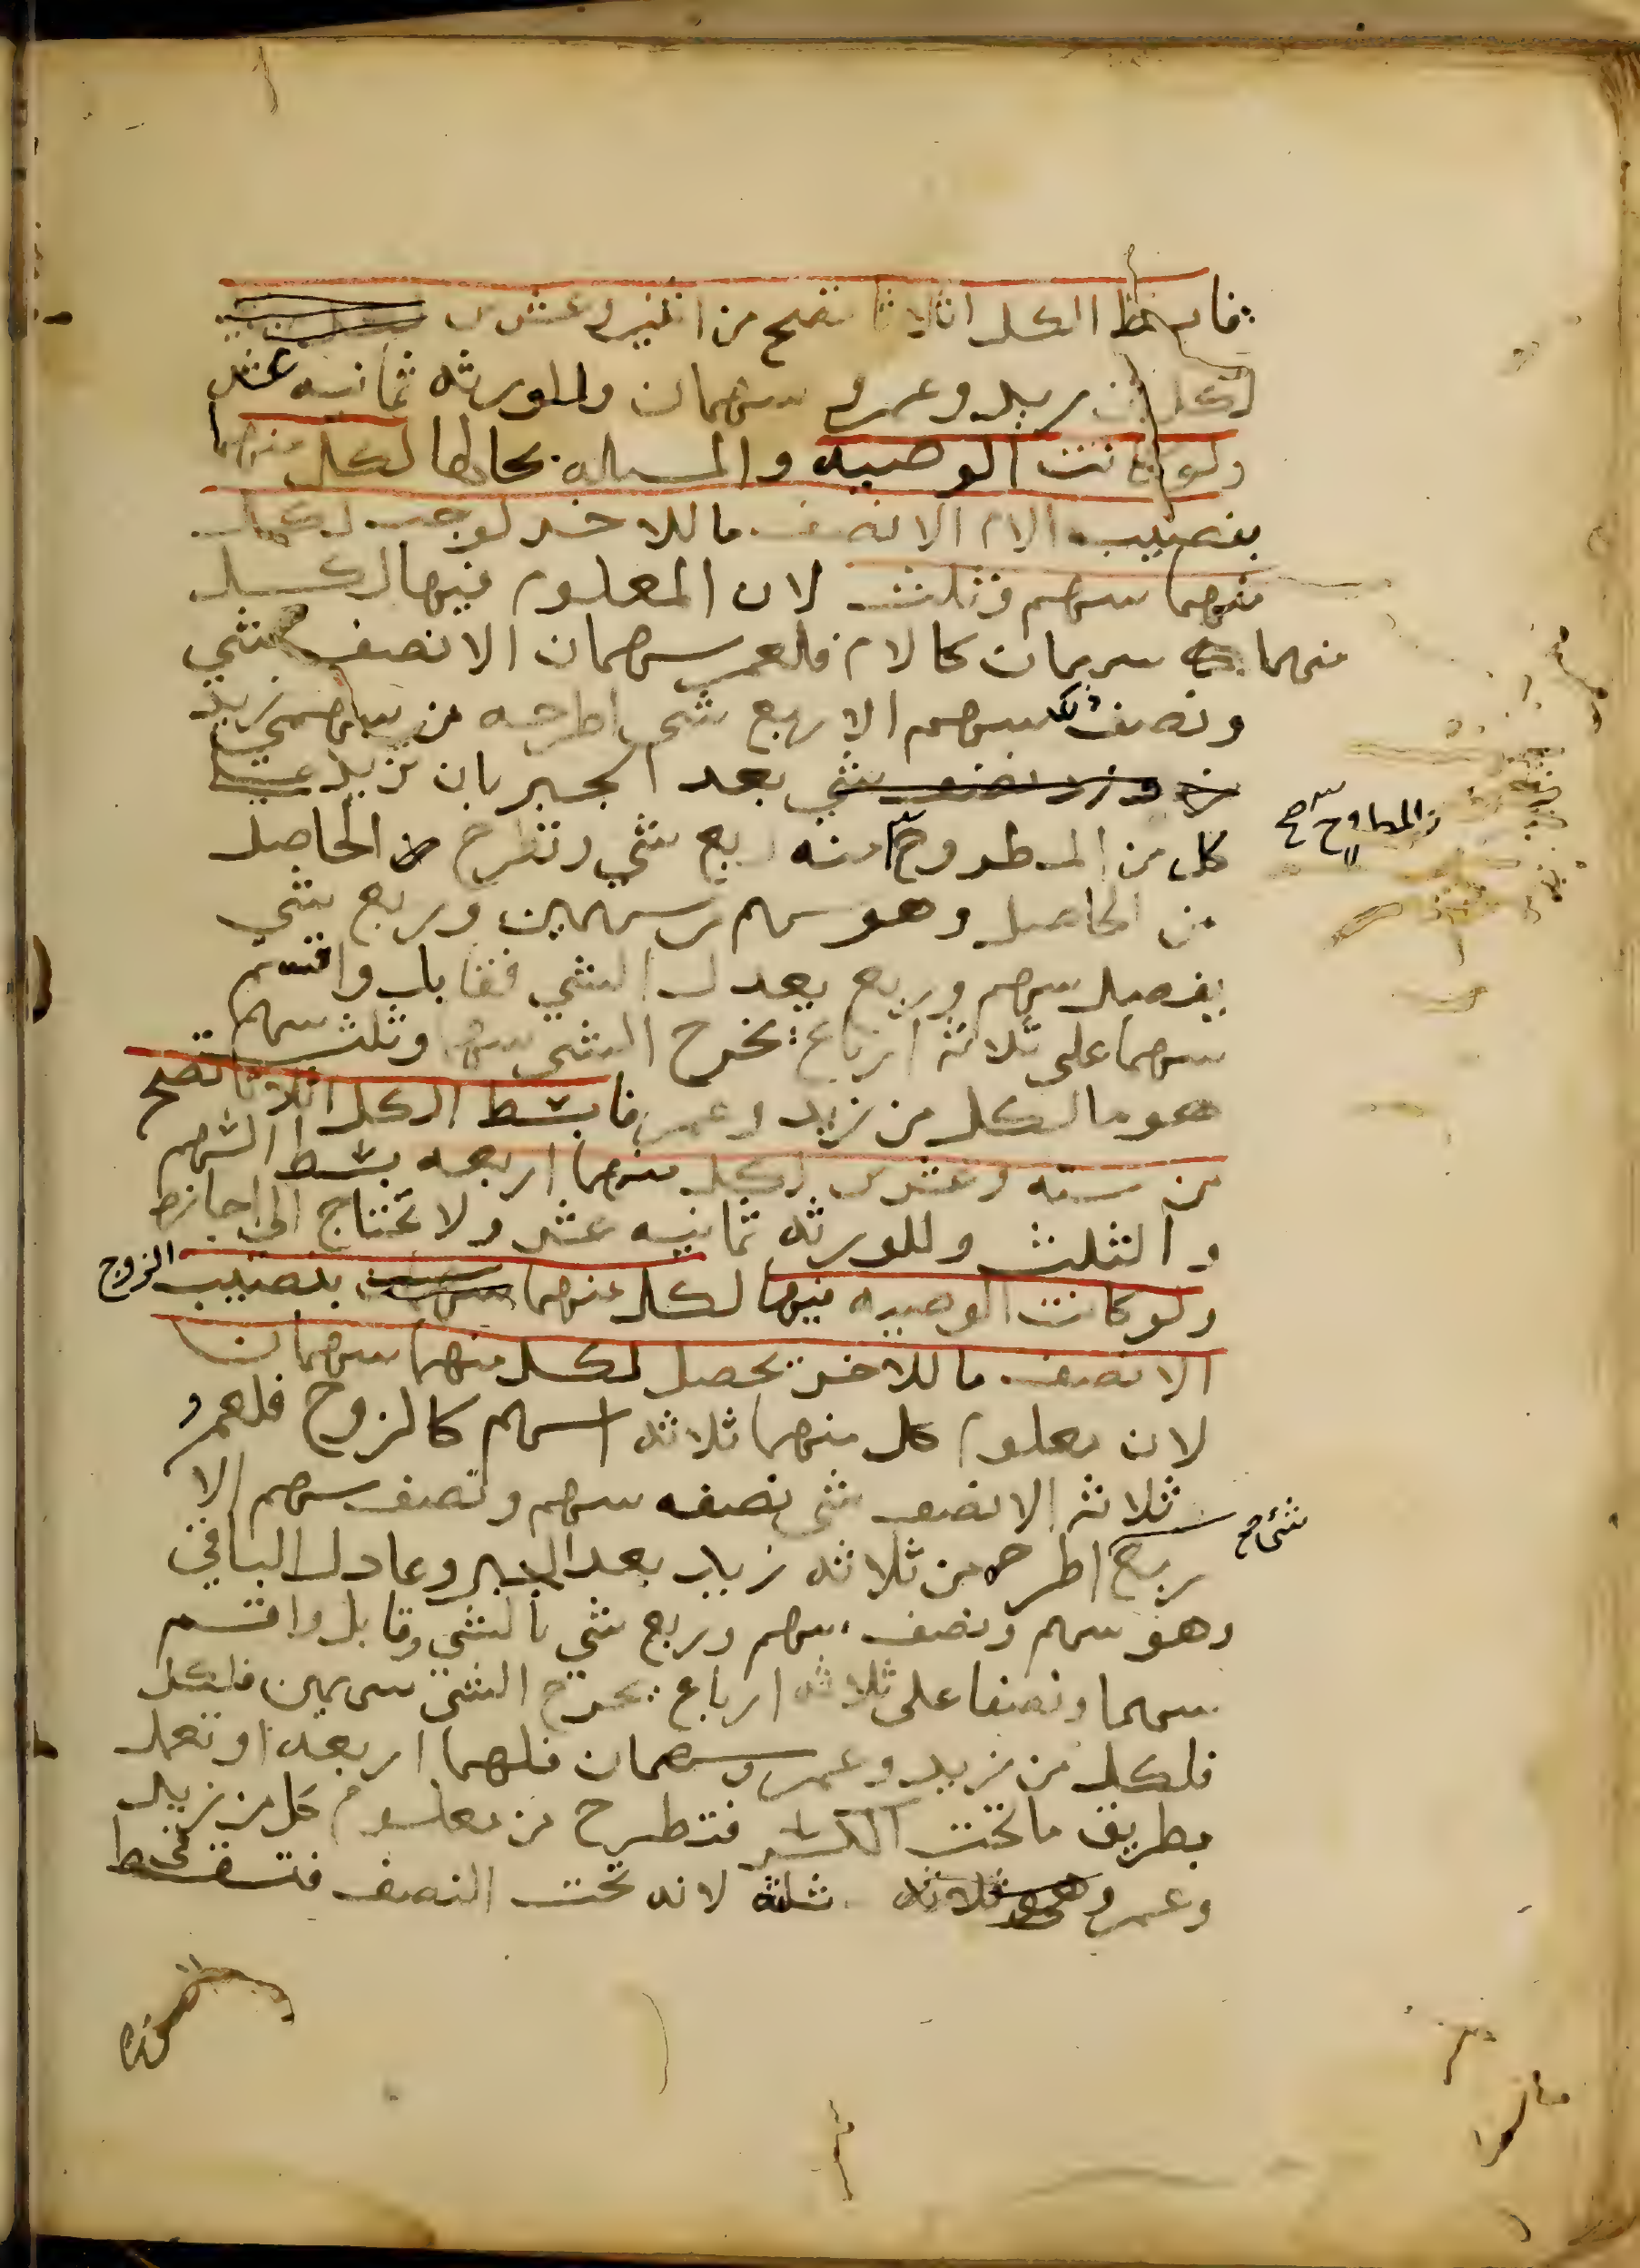 فابسط الكل اثلاثا تصح من اثنين وعشرين
لكل من زيد وعمرو سهمان وللورثه ثمانيه عشر
ولو كانت الوصيه والمساله بحالها لكل منهما
بنصيب الام الا نصف ما للاخر لوجب لكل
منهما سهم وثلث لان المعلوم فيها لكل
منهما سهمان كالام فلعمر سهمان الا نصف شي
ونصف ذلك سهم الا ربع شي اطرحه من سهمي زيد
بعد الجبر بان تزيد على
كل من المطروح منه ربع شي وتطرح الحاصل
والمطروح صح
من الحاصل وهو سهم من سهمين وربع شي
يفضل سهم وربع يعدل الشي فقابل واقسم
سهما على ثلاثة ارباع يخرج الشي سهما وثلث سهم
هو ما لكل من زيد وعمر فابسط الكل اثلاثا تصح
من سته وعشرين لكل منهما اربعه بسط السهم
والثلث وللورثه ثمانيه عشر ولا تحتاج الى اجازه
ولو كانت الوصيه فيها لكل منهما بنصيب الزوج
الا نصف ما للاخر يحصل لكل منهما سهمان
لان معلوم كل منهما ثلاثه اسهم كالزوج فلعمرو
ثلاثة الا نصف شي نصفه سهم ونصف سهم الا
ربع شئ صح اطرحه من ثلاثه زيد بعد الجبر وعادل الباقي
وهو سهم ونصف سهم وربع شي بالشي وقابل واقسم
سهما ونصفا على ثلاثه ارباع يخرج الشي سهمين فلكل
فلكل من زيد وعمرو سهمان فلهما اربعه او تعمل
بطريق ما تحت الكسر فتطرح من معلوم كل من زيد
وعمرو وهو ثلاثه ثلثه لانه تحت النصف فتسقط